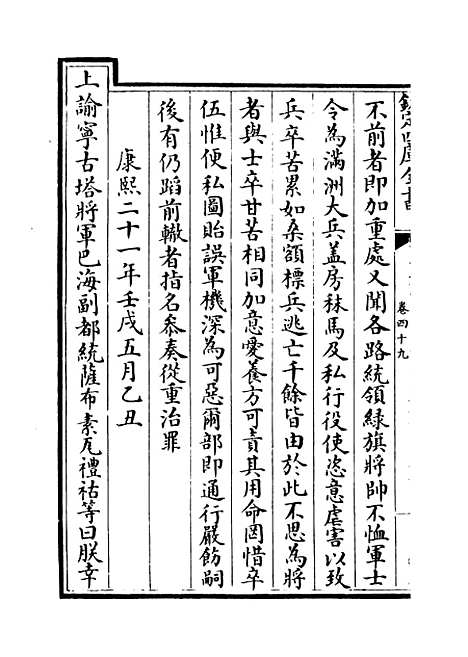 欽定四庫全書
卷四十九
不前者即加重處又聞各路統領緑旗將帥不恤軍士
令為滿洲大兵盖房秣馬及私行役使恣意虐害以致
兵卒苦累如桑額標兵逃亡千餘皆由於此不思為將
者與士卒甘苦相同加意愛養方可責其用命罔惜卒
伍惟便私圖貽誤軍機深為可惡爾部即通行嚴飭嗣
後有仍蹈前轍者指名叅奏從重治罪
康熙二十一年壬戌五月乙丑
上諭寧古塔將軍巴海副都統薩布素瓦禮祜等曰朕幸